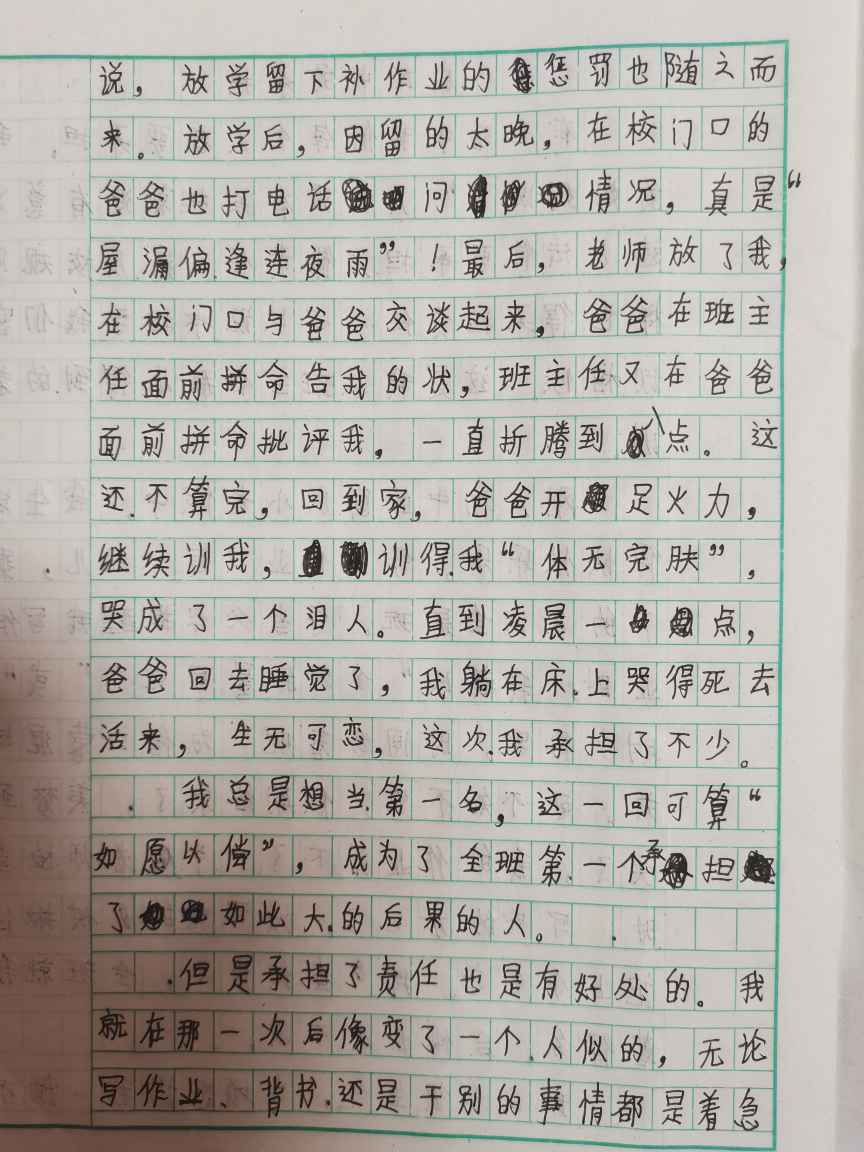 说，放学留下补作业的惩罚也随之而
来。放学后，因留的太晚，在校门口的
爸爸也打电话问情况，真是“
屋漏偏逢连夜雨”！最后，老师放了我，
在校门口与爸爸交谈起来，爸爸在班主
任面前拼命告我的状，班主任又在爸爸
面前拼命批评我，一直折腾到八点。这
还不算完，回到家，爸爸开足火力，
继续训我，训得我“体无完肤”，
哭成了一个泪人。直到凌晨一点，
爸爸回去睡觉了，我躺在床上哭得死去
活来，生无可恋，这次我承担了不少。
我总是想当第一名，这一回可算“
如愿以偿”，成为了全班第一个承担
了如此大的后果的人。
但是承担了责任也是有好处的。我
就在那一次后像变了一个人似的，无论
写作业、背书还是干别的事情都是着急